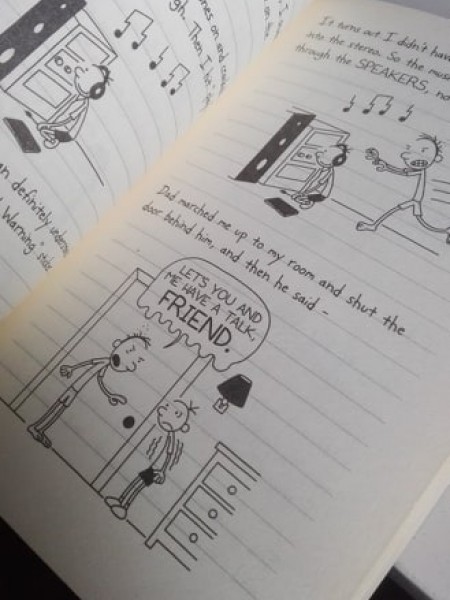 ones on and
gh. Then I
an definitely
Warning"
It turns out I didn't have
into the stereo. So the mus
through the SPEAKERS, no
Dad marched me up to my room and shut the
door behind him, and then he said -
LET'S YOU AND
ME HAVE A TALK,
FRIEND.